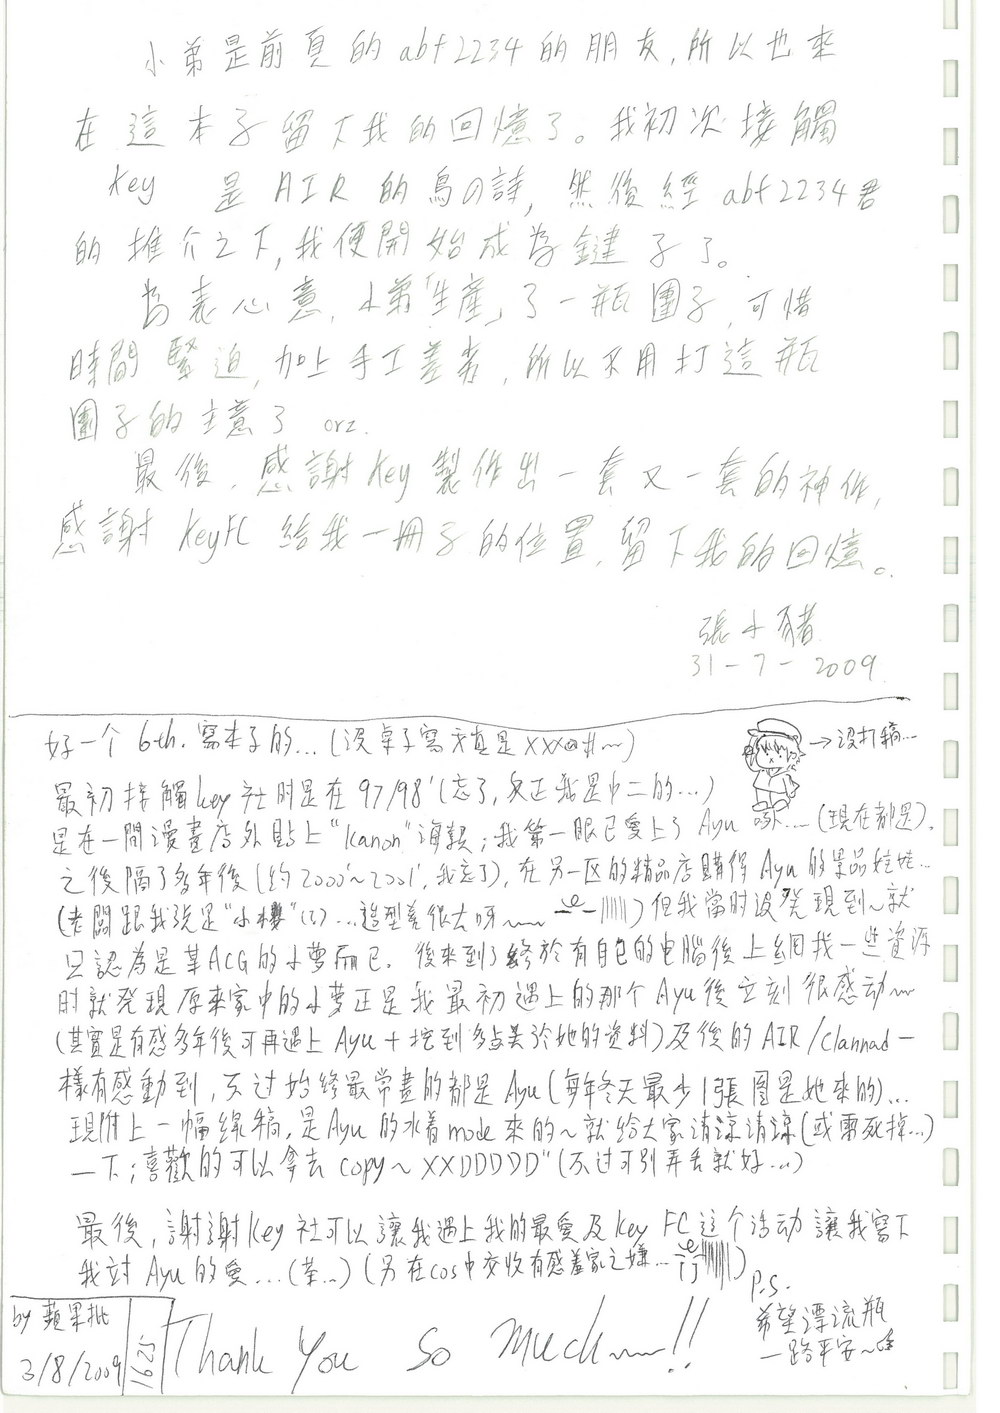 小弟是前頁的abf2234的朋友,所以也來
在這本子留下我的回憶了。我初次接觸
Key 是AIR的鳥の詩,然後經abf2234君
的推介之下,我便開始成為鍵子了。
為表心意,小弟「生産」了一瓶團子,可惜
時間緊迫,加上手工差劣,所以不用打這瓶
團子的主意了 orz.
最後,感謝Key製作出一套又一套的神作,
感謝KeyFC給我一冊子的位置,留下我的回憶。
張小豬
31-7-2009
好一个6th.寫本子的...(沒桌子寫天真是XXX@#~)
→沒打稿...
最初接觸key社时是在97/98'(忘了,反正我是中二的...)
是在一間漫畫店外貼上"Kanon"海報;我第一眼已愛上了Ayu 啄....(現在都是).
之後隔了多年後(約2000'~2001',我忘了),在另一区的精品店購得Ayu的景品娃娃...
(老闆跟我説是"小櫻"(?)...造型差很大呀~~)但我當时沒発現到~就
只認為是某ACG的小夢而已. 後來到了終於有自己的电腦後上網找一些資源
时就発現原來家中的小夢正是我最初遇上的那个Ayu後立刻很感动~~
(其實是有感多年後可再遇上Ayu+挖到多点关於她的资料)及後的AIR/Clannad一
樣有感動到,不过始終最常畫的都是Ayu(每年冬天最少1張图是她來的)...
現附上一幅線稿,是Ayu的水着mode來的~就給大家清涼清涼(或雷死掉...)
一下;喜歡的可以拿去copy~XXDDDDD"(不过可別弄丢就好...)
最後,謝謝Key社可以讓我遇上我的最愛及Key FC这个活动讓我寫下
我对Ayu的愛...(茎...)(另在cos中交收有感羞家之嫌...)
P.S.
希望漂流瓶
一路平安~
by 蘋果批
3/8/2009
1625
Thank You So Much~~!!